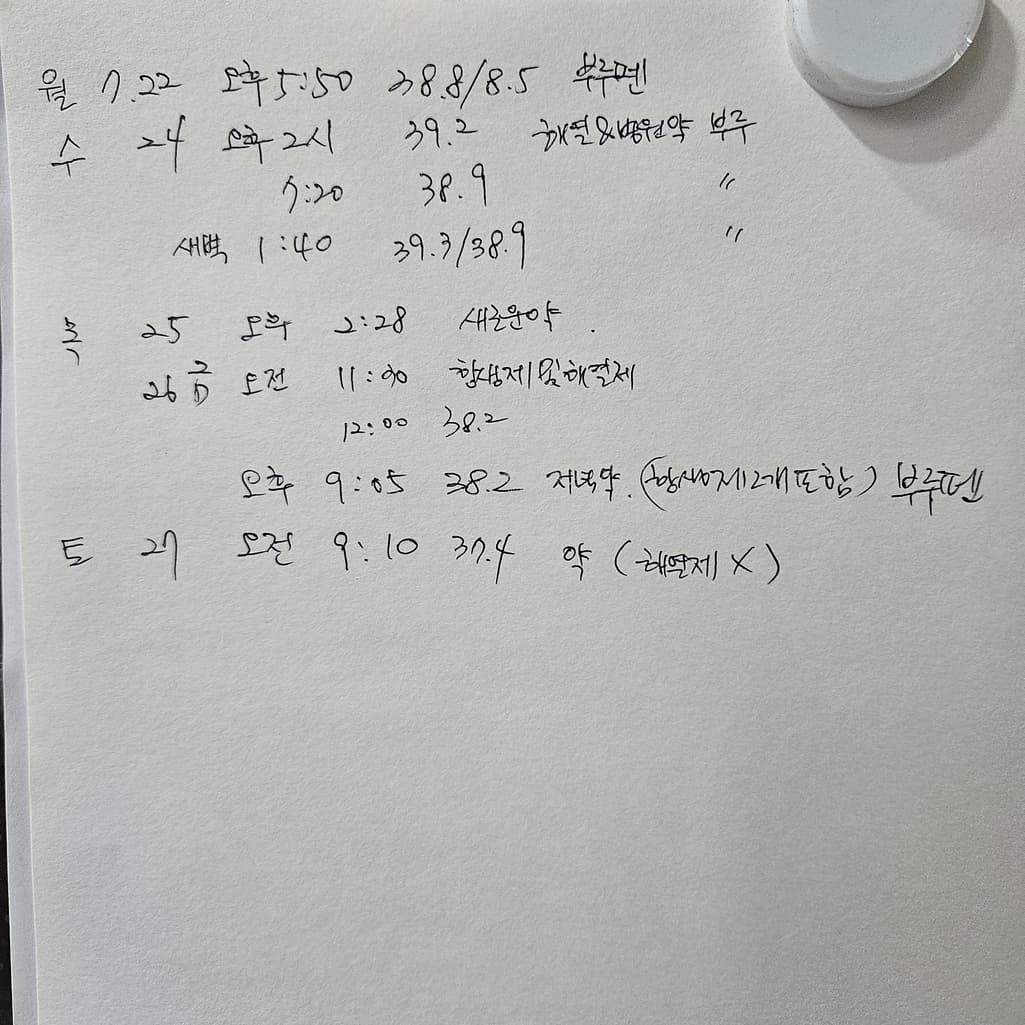 월 7.22 오후 5:50 38.8/8.5 부루펜
수 24 오후 2시 39.2 해열&병원약 부루
7:20 38.9 〃
새벽 1:40 39.3/38.9 〃
목 25 오후 2:28 새로운약.
26 금 오전 11:00 항생제및해열제
12:00 38.2
오후 9:05 38.2 저녁약.(항생제2개포함) 부루펜
토 27 오전 9:10 37.4 약 (해열제 X)